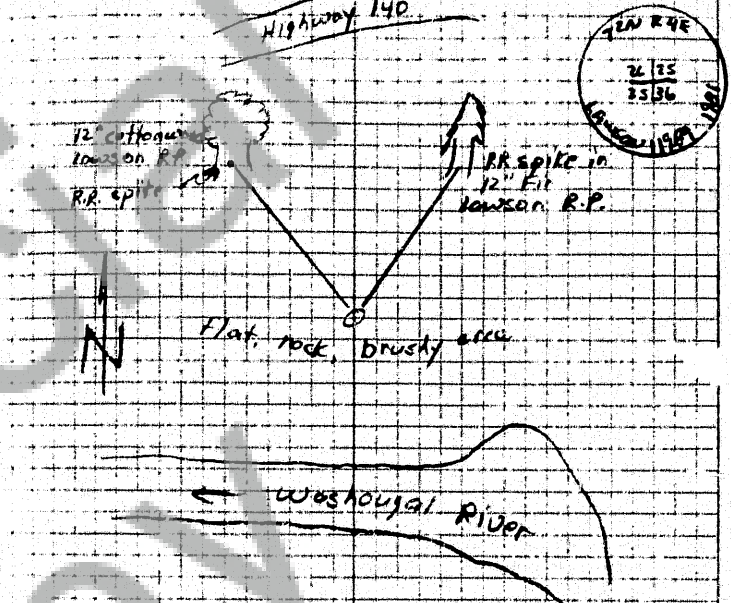 Highway 140
T2N R4E
26 25
35 36
LAWSON 11989 1981
12" cottonwood
Lawson R.P.
R.R. spike
RR spike in
12" Fir
Lawson R.P.
N
Flat, rock, brushy area
Washougal River